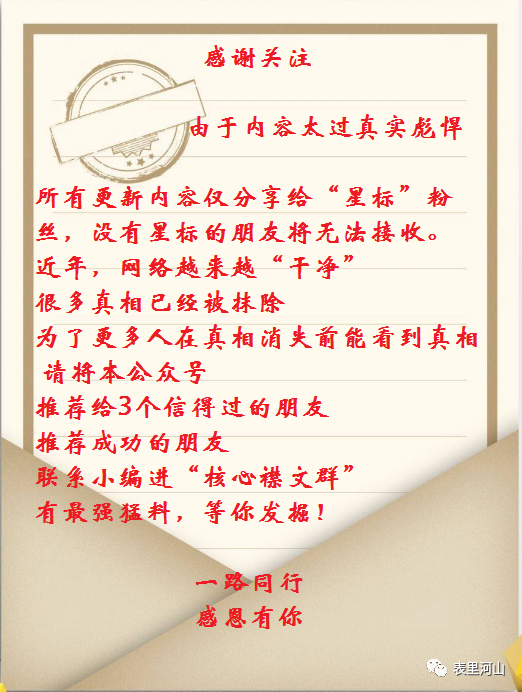 感谢关注
由于内容太过真实彪悍
所有更新内容仅分享给“星标”粉
丝，没有星标的朋友将无法接收。
近年，网络越来越“干净”
很多真相已经被抹除
为了更多人在真相消失前能看到真相
请将本公众号
推荐给3个信得过的朋友
推荐成功的朋友
联系小编进“核心襟文群”
有最强猛料，等你发掘！
一路同行
感恩有你
表里河山